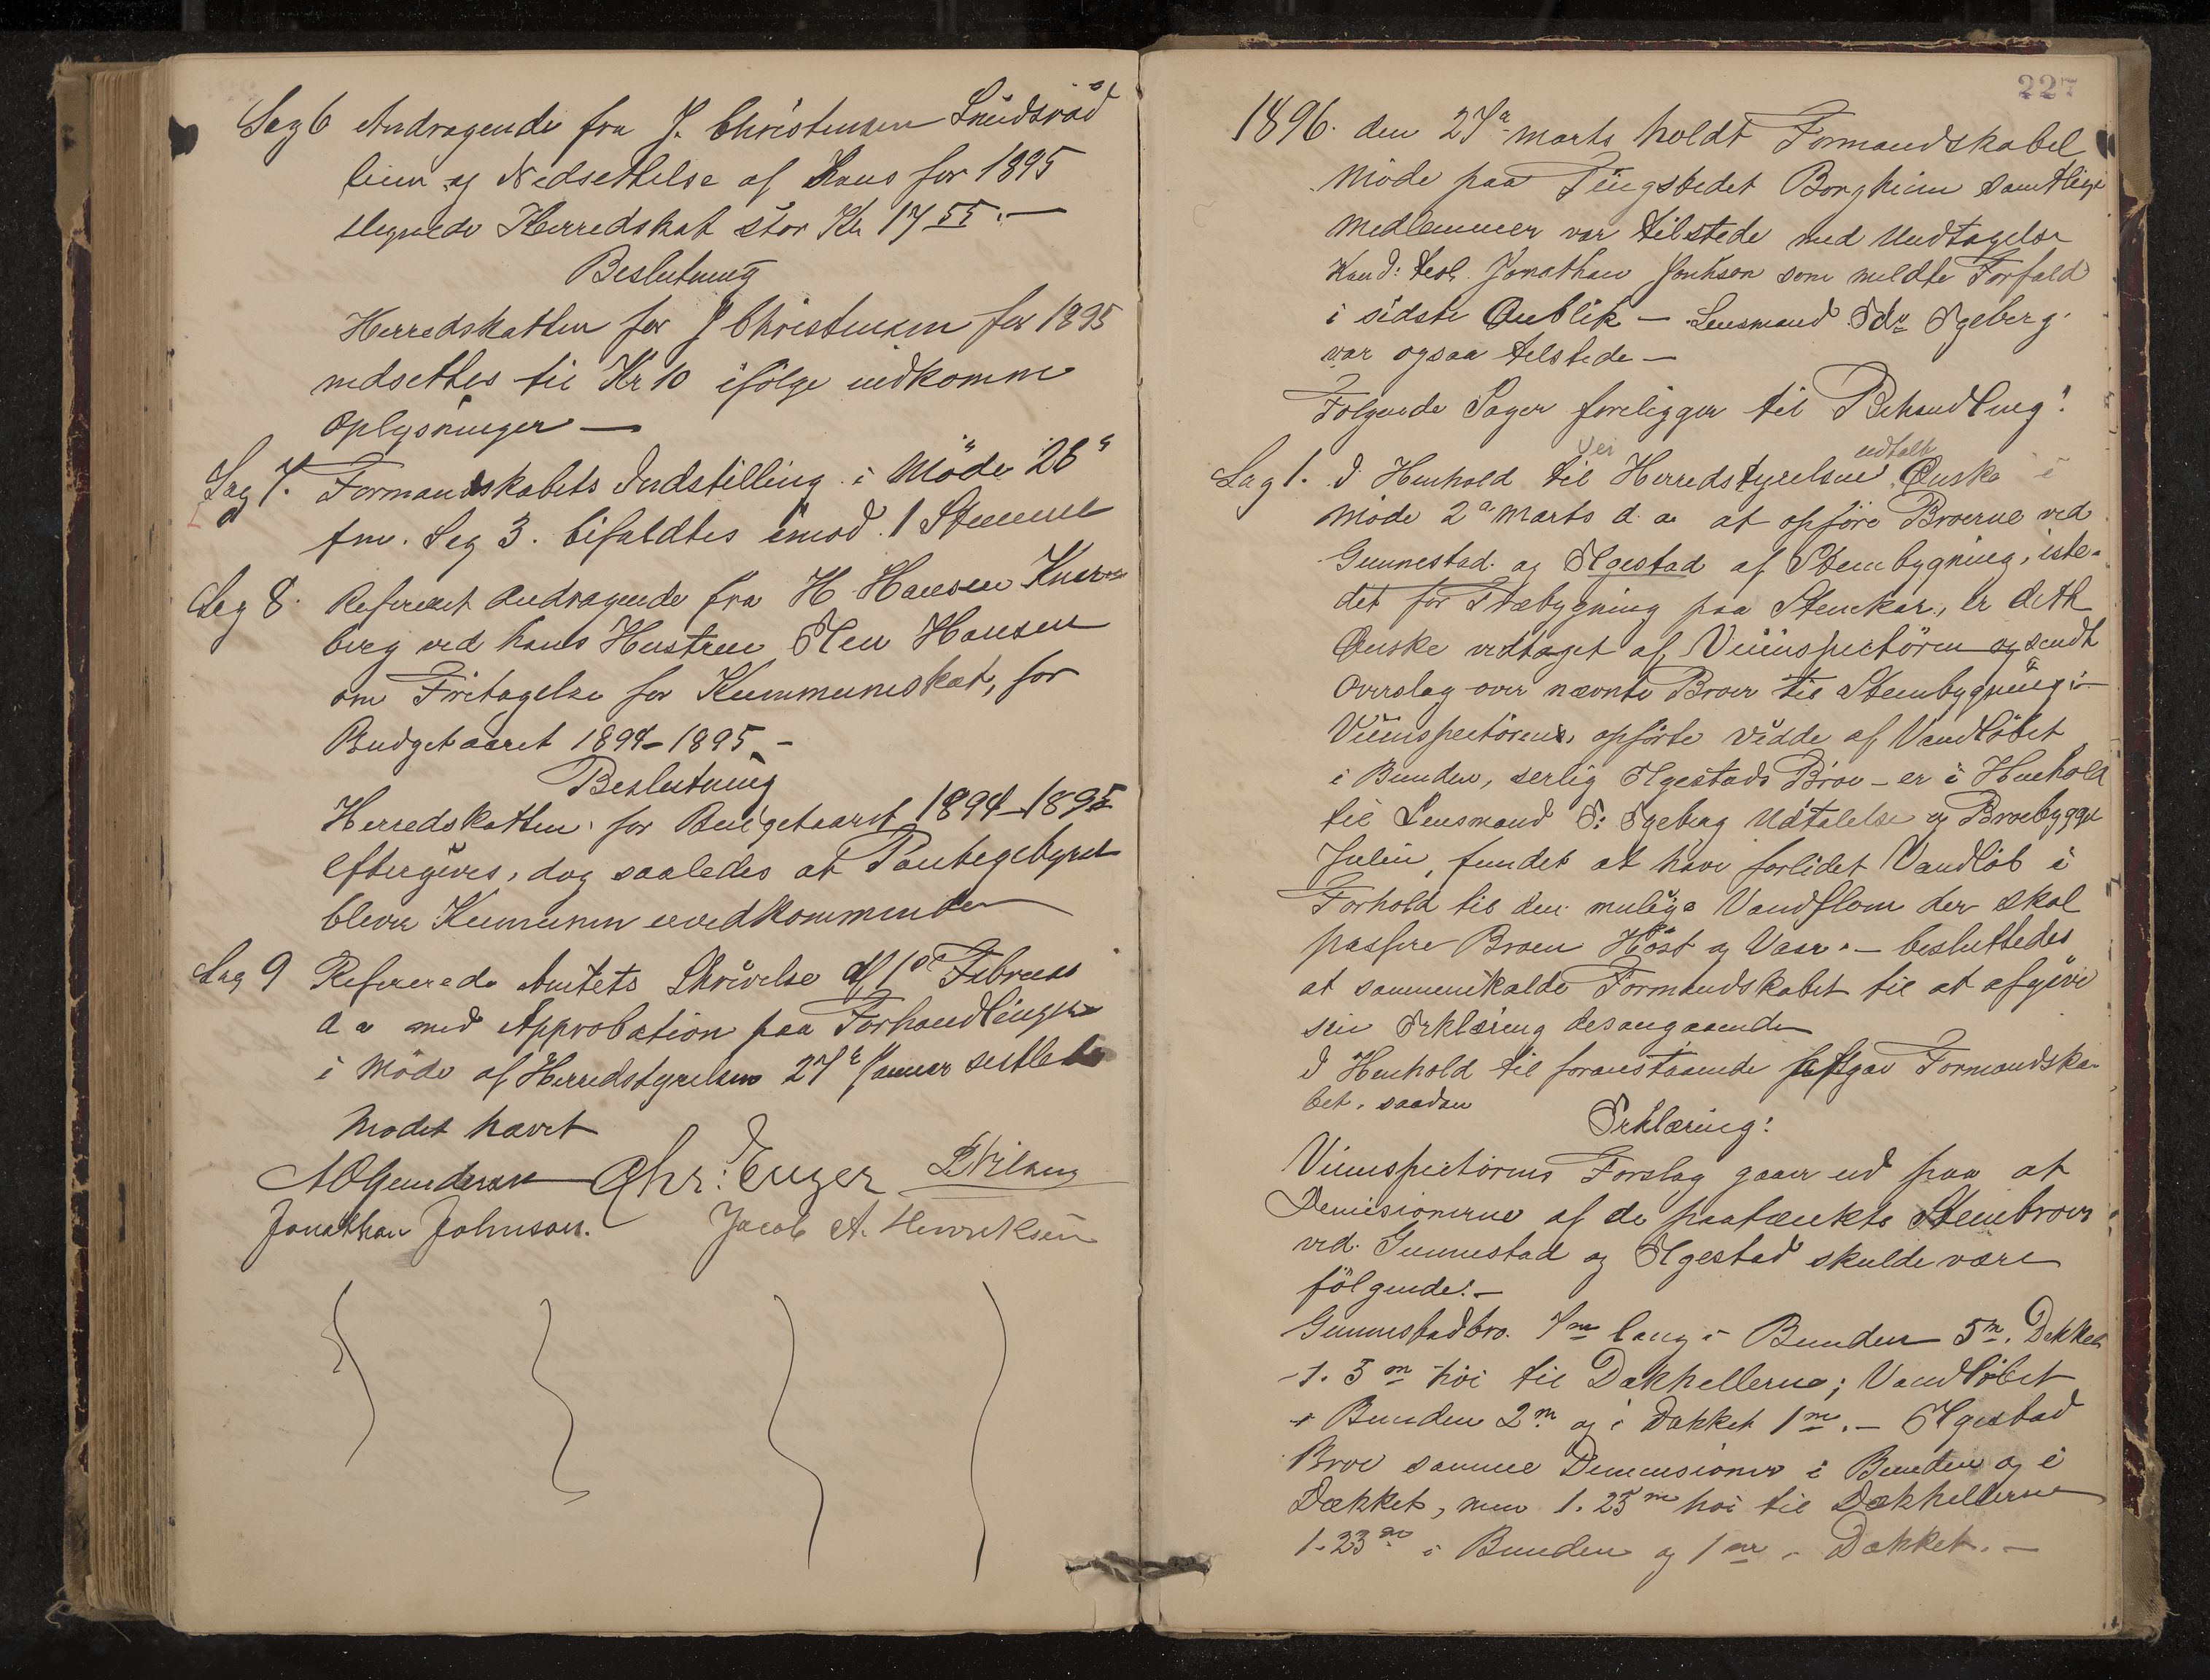 Sag 6 Andragende fra J. Christensen Snidsrød
om Nedsettelse af Hans for 1895
ilignede Herredskat stor Kr 17 55.—
Beslutning
Herredskatten for J Christensen for 1895
nedsettes til Kr 10 ifølge indkomne
Oplysninger —
Sag 7. Formandskabets Indstilling i Møde 26de
fm. Sag 3. bifaldtes imod 1 Stemme
Sag 8. Refereret Andragende fra H Hansen
berg ved hans Hustru Elen Hansen
om Fritagelse for Kummuneskat, for
Budgetaaret 1894–1895 –
Beslutning
Herredskatten for Budgetaaret 1894–1895
eftergives, dog saaledes at Pantegebyret
bliver Kumunen uvedkommende
Sag 9 Refererede Amtets Skrivelse af 10de Februar
d a med Approbation paa Forhandlinger
i Møde af Herredstyrelsen 27de Januar sidstleden
Modet hævet
A O Gundersen Chr: Enger
Jonathan Johnson. Jacob A. Henriksen
227
1896. den 27de marts holdt Formandskabet
Møde paa Tingstedet Borgheim samtlige
Medlemmer var tilstede med Undtagelse
Kand: teol. Jonathan Johnson som meldte Forfald
i sidste Øieblik — Lensmand Edv Egeberg
var ogsaa tilstede —
Følgende Sager foreligger til Behandling:
Vei udtalte
Sag 1. I Henhold til Herredstyrelsens Ønske i
Møde 2de Marts d. a. at opføre Broerne ved
Gunnestad og Elgestad af Stenbygning, iste-
det for Træbygning paa Stenkar, er dette
Ønske vedtaget af Veiinspectøren og sendt
Overslag over nævnte Broer til Stenbygning i
Veiinspectørens, opførte Vidde af Vandløbet
i Bunden, serlig Elgestads Broe – er i Henhold
til Lensmand E: Egeberg Udtalelse og Broebygger
Julin, fundet at have forlidet Vandløb i
Forhold til den mulige Vandflom der skal
passere Broen Høst og Vaar. – besluttedes
at sammenkalde Formandskabet til at afgive
sin Erklæring desangaaende
I Henhold til foranstaaende afgav Formandska-
bet saadan
Erklæring:
Veiinspectørens Forslag gaar ud paa at
Demisionerne af de paatænkte Stenbroer
ved Gunnestad og Elgestad skulde være
følgende:—
Gunnestadbro. 7m lang i Bunden 5m. Dækket
1. 3 m høi til Dækhellerne; Vandløbet
i Bunden 2m og i Dækket 1m. – Elgestad
Broe samme Demensioner i Bunden og i
Dækket, men 1. 25m høi til Dækhellerne
1.23m i Bunden og 1m i Dækket. —